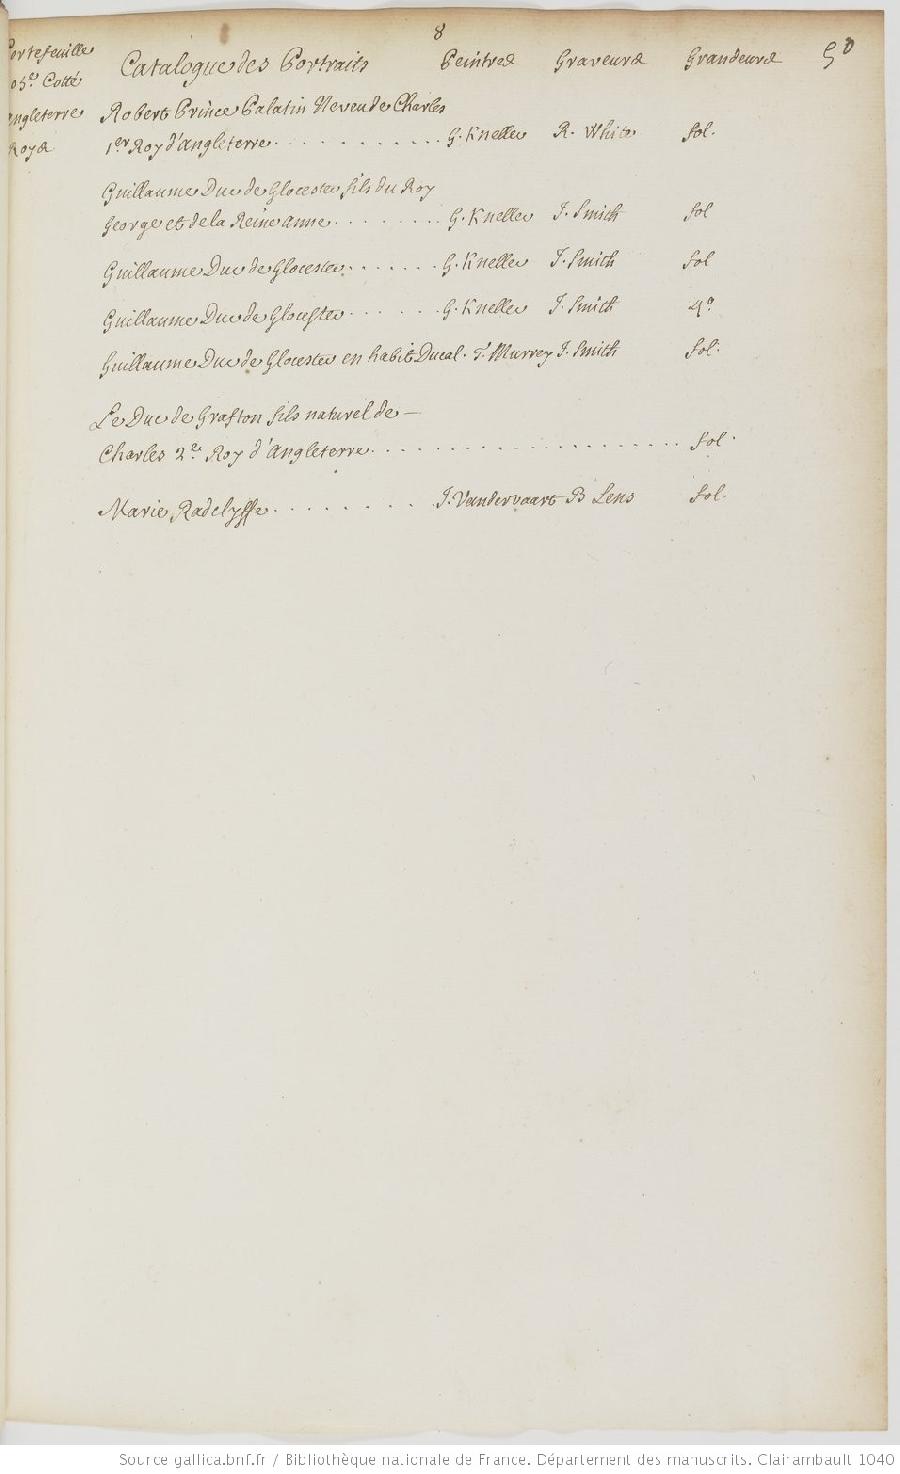 8
50
Portefeuille
105.e Cotté
Angleterre
Roya
Catalogue des Portraits Peintres Graveurs Grandeurs
Robert Prince Palatin Neveu de Charles
1.er Roy d'angleterre . . . . . . . . . . . G. Kneller R. White fol.
Guillaume Duc de Glocester fils du Roy
George et de la Reine anne . . . . . . . . G. Kneller J. Smich fol
Guillaume Duc de Glocester . . . . . . . G. Kneller J. Smich fol
Guillaume Duc de Glouster . . . . . . G. Kneller J. Smich 4.o
Guillaume Duc de Glocester en habit Ducal. T. Murrey J. Smith fol.
Le Duc de Grafton fils naturel de —
Charles 2.e Roy d'angleterre . . . . . . . . . . . . . . . . . . . . fol.
Marie Radclyffe . . . . . . . . . J. Vandervaart B Lens fol.
Source gallica.bnf.fr / Bibliothèque nationale de France. Département des manuscrits. Clairambault 1040